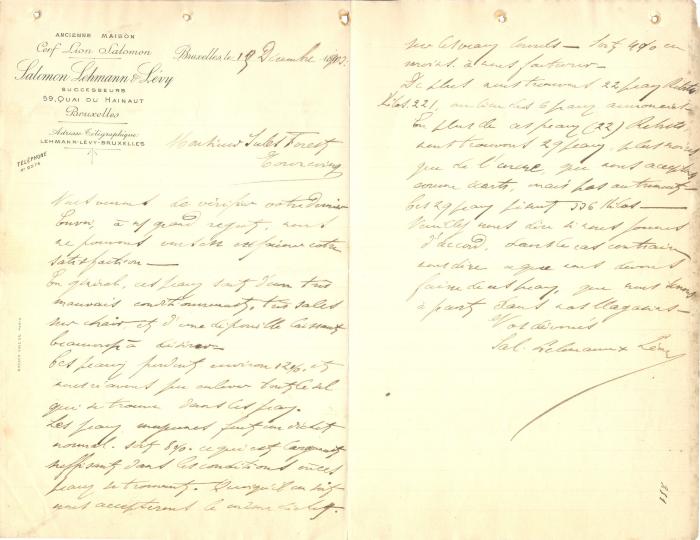 ANCIENNE MAISON
Cerf Lion Salomon
Salomon Lehmann & Lévy
SUCCESSEURS
59, QUAI DU HAINAUT
Bruxelles
Adresse Télégraphique:
LEHMANN-LÉVY-BRUXELLES
TÉLÉPHONE
Bruxelles, le 19 Décembre 190
Monsieur Jules Forest
Tourcoing
Nous venons de vérifier votre dernier
Envoi, à n/ grand regret, nous
ne pouvons vous en exprimer notre
satisfaction —
En général, ces peaux sont d'un très
mauvais conditionnement, très sales
sur chair et d'une dépouille laissant
beaucoup à désirer —
Ces peaux perdent environ 12%, et
nous n'avons pu enlever tout le sel
qui se trouve dans les peaux.
Les peaux moyennes font un déchet
normal, soit 8%, ce qui est largement
suffisant dans les conditions où ces
peaux se trouvent. Quoiqu'il en soit
nous accepterons le même déchet
sur les peaux lourdes — soit 4% en
moins à nous facturer —
De plus nous trouvons 22 peaux Rebuts
kilos 221, au lieu des 6 peaux annoncées
En plus de ces peaux (22) Rebuts,
nous trouvons 29 peaux, plus moins
que de l'
comme écarts, mais pas autrement
Ces 29 peaux pèsent 336 kilos —
Veuillez nous dire si nous sommes
d'accord, dans le cas contraire
nous dire ce que nous devons
faire de ces peaux, que nous tenons
à part dans nos Magasins —
Vos dévoués
Sal. Lehmann & Lévy
158